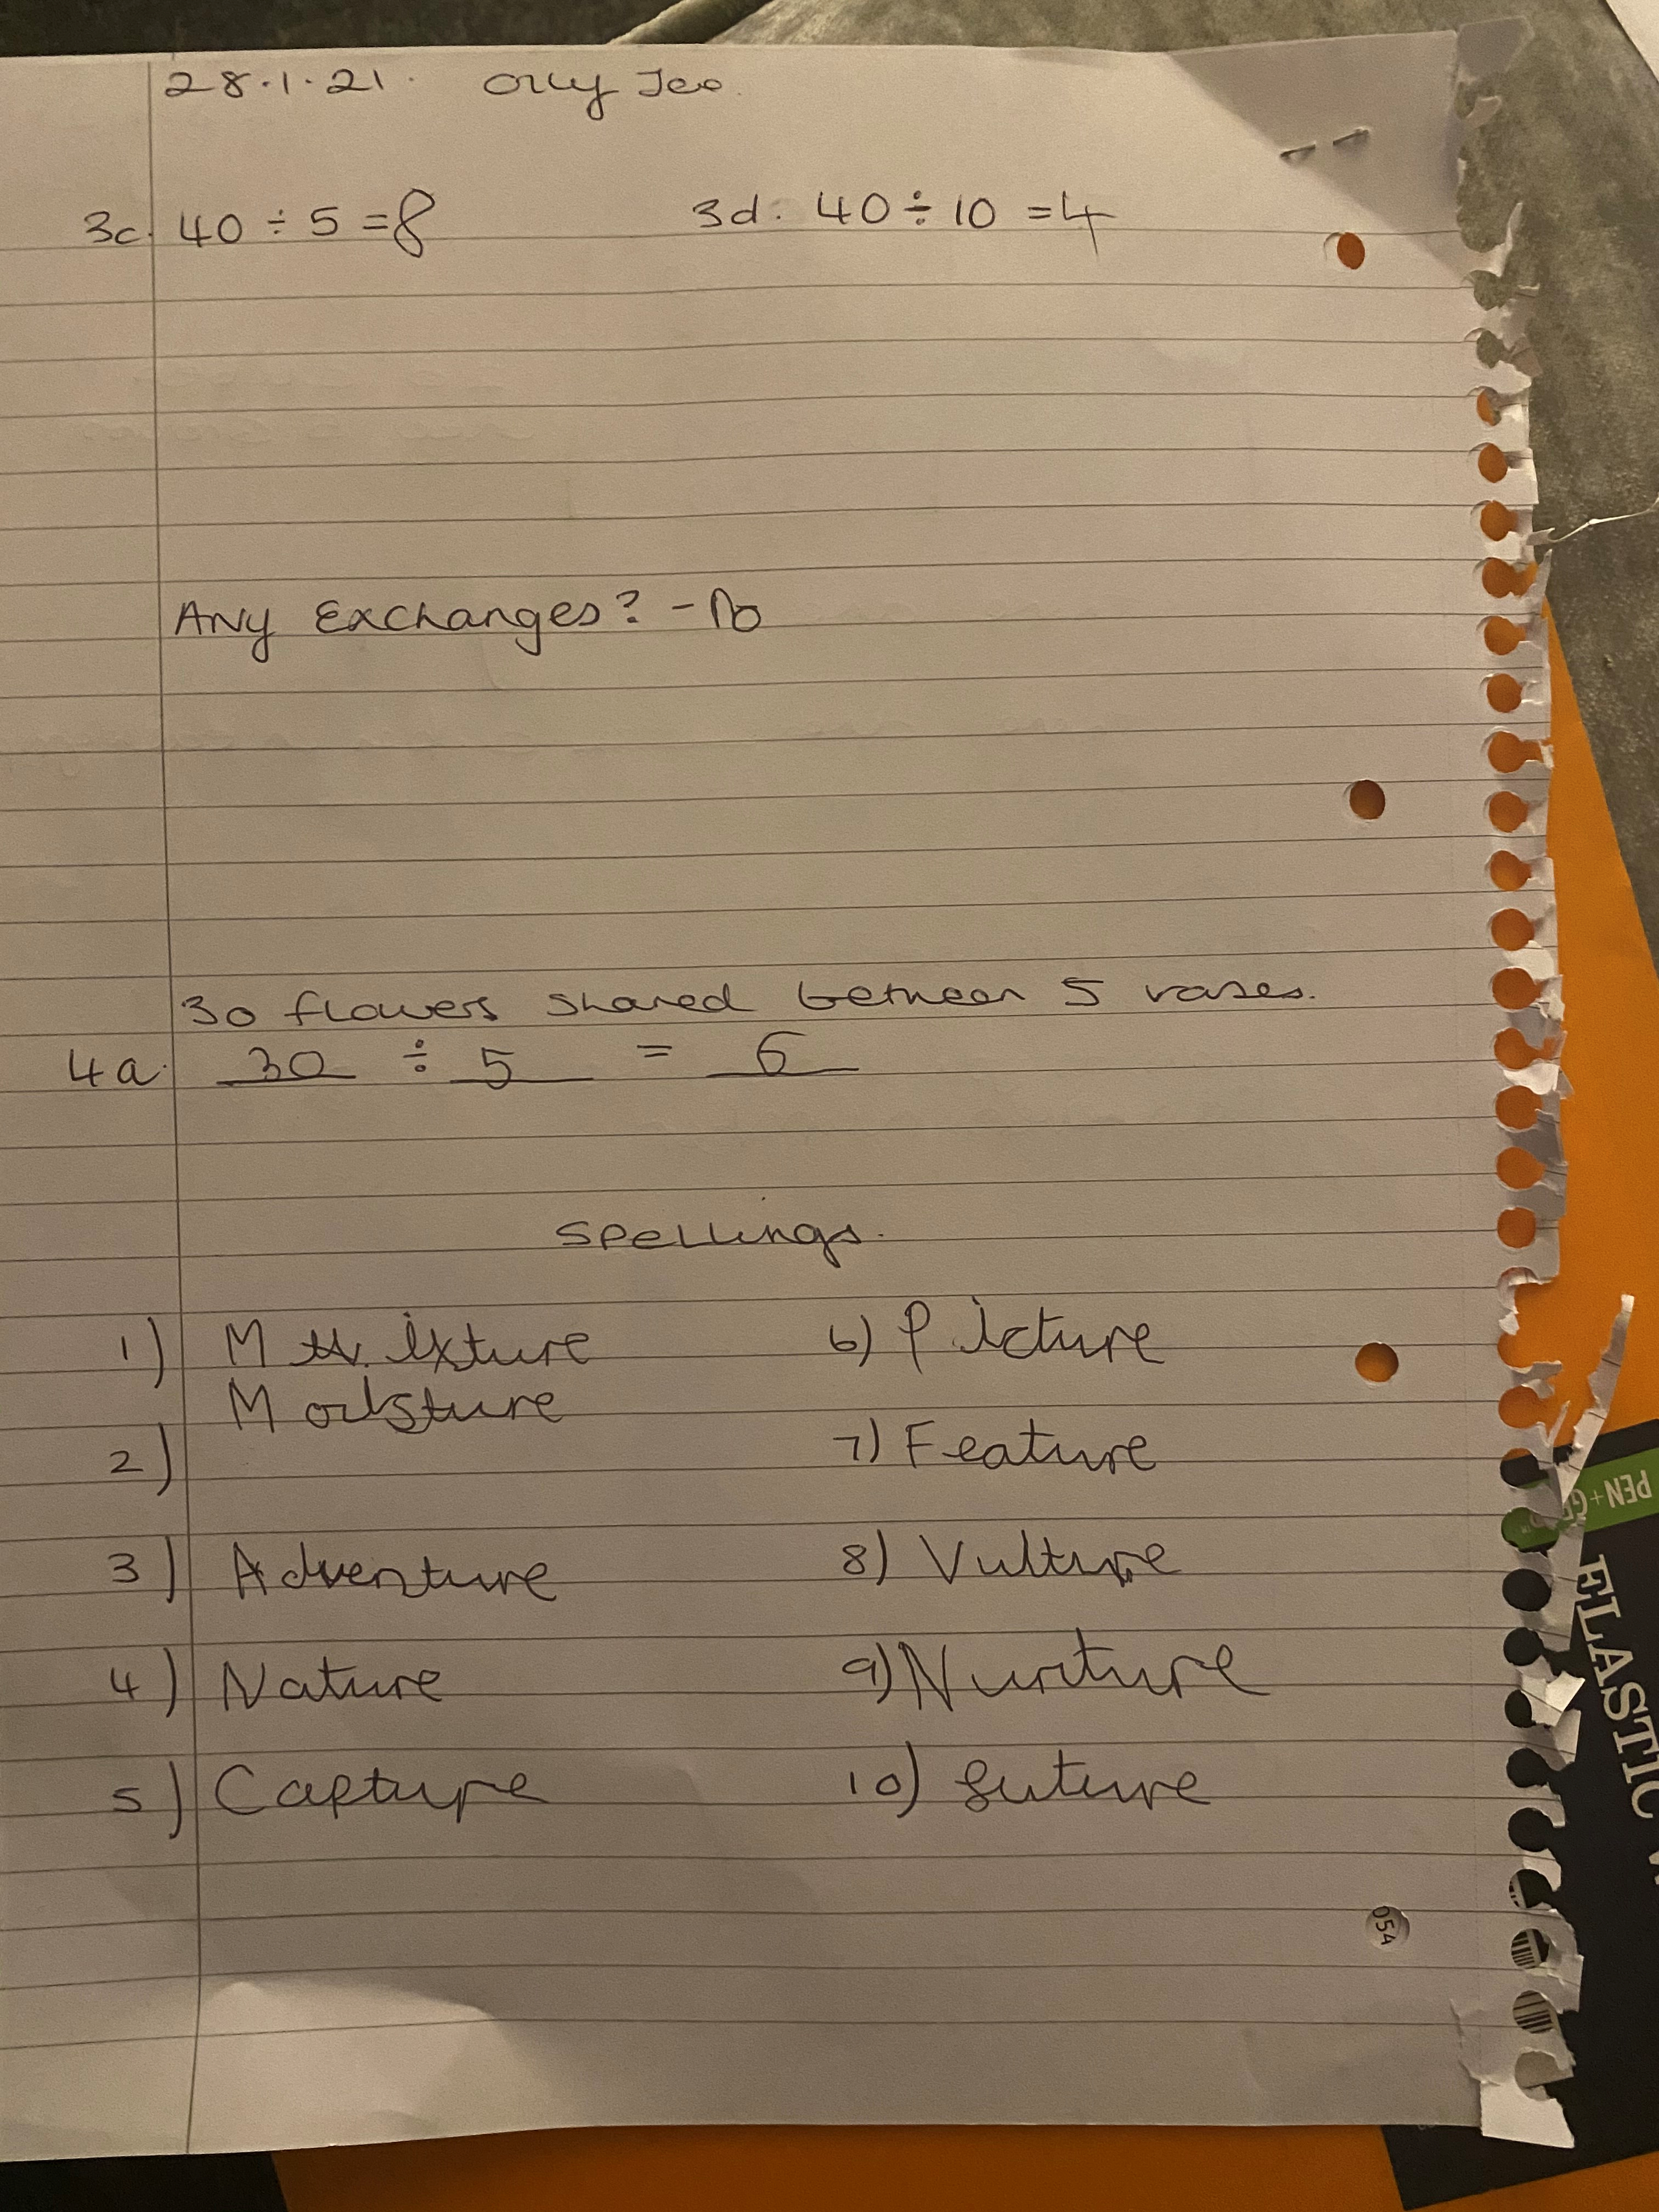 28.1.21. Olly Jee.
3c. 40 ÷ 5 = 8
3d. 40 ÷ 10 = 4
Any Exchanges? - No
30 flowers shared between 5 vases.
4a. 30 ÷ 5 = 6
Spellings.
1) M ixture
Moisture
2)
3) Adventure
4) Nature
5) Capture
6) Picture
7) Feature
8) Vulture
9) Nurture
10) future
054
PEN+G
ELASTIC